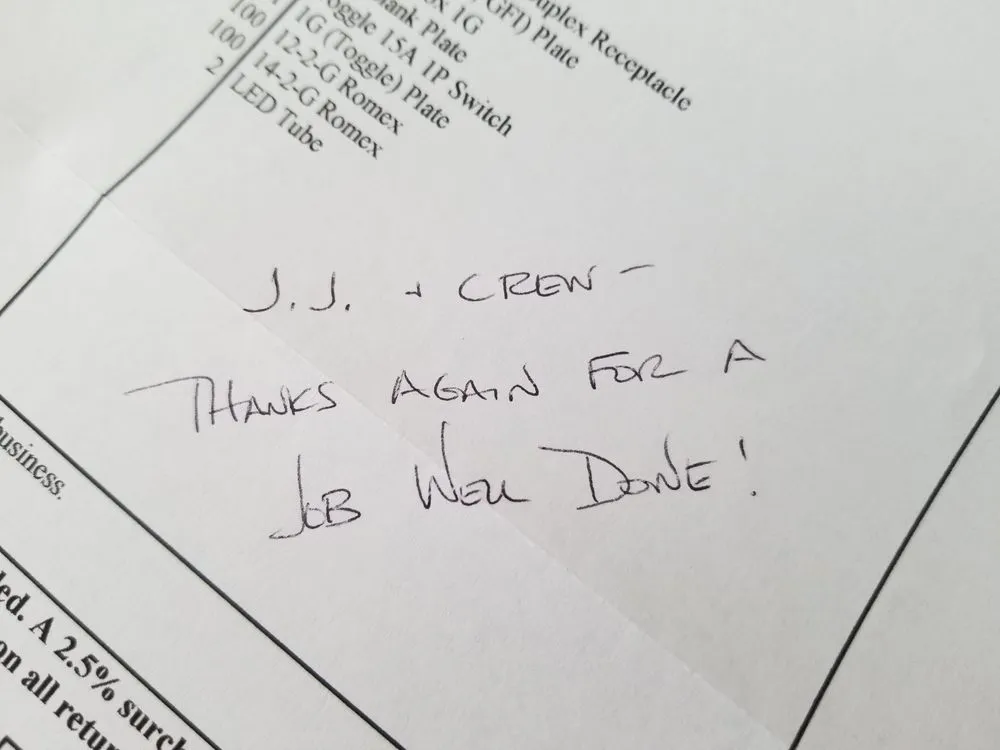 Duplex Receptacle
(GFI) Plate
1G
Blank Plate
Toggle 15A 1P Switch
1G (Toggle) Plate
100 12-2-G Romex
100 14-2-G Romex
2 LED Tube
J.J. + CREW -
THANKS AGAIN FOR A
JOB WELL DONE!
business.
A 2.5%
on all